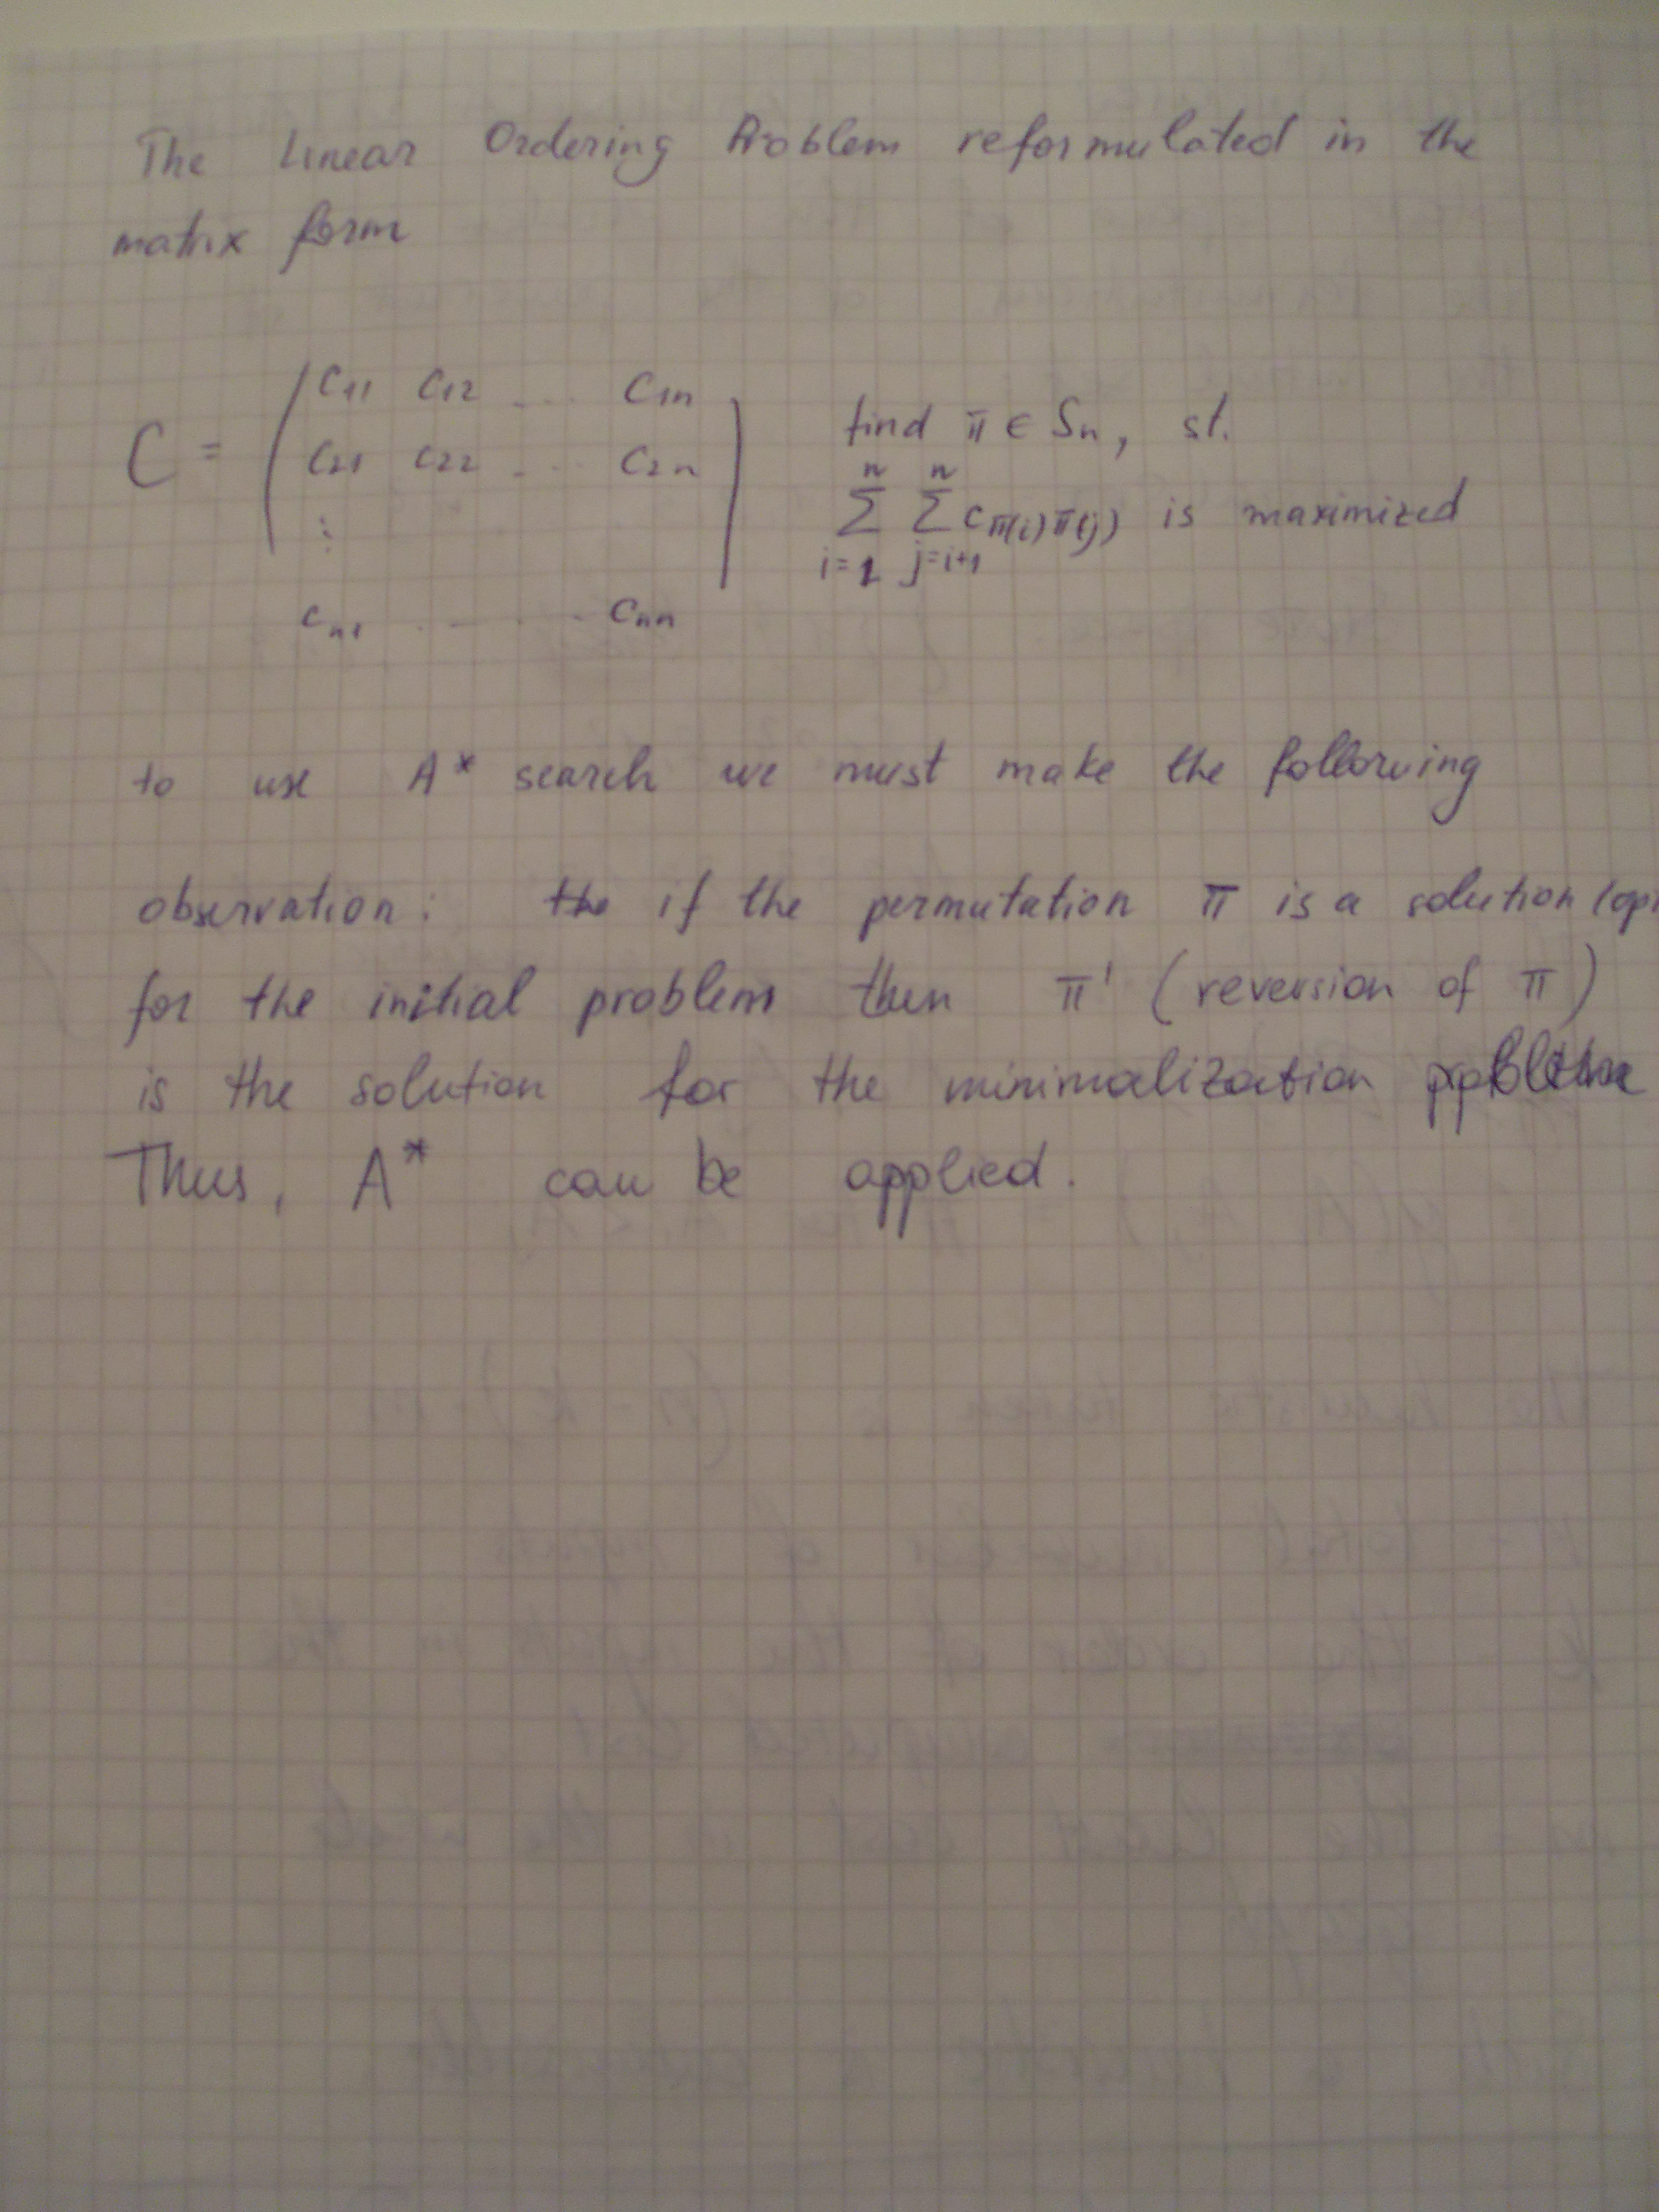 The Linear Ordering Problem reformulated in the
matrix form
C = ( c11 c12 ... c1n
c21 c22 ... c2n
⋮
cn1 . . . . . cnn )
find π ∈ Sn, st.
∑_{i=1}^{n} ∑_{j=i+1}^{n} c_{π(i)π(j)} is maximized
to use A* search we must make the following
observation: the if the permutation π is a solution (opt
for the initial problem then π' (reversion of π)
is the solution for the minimalization problem
Thus, A* can be applied.